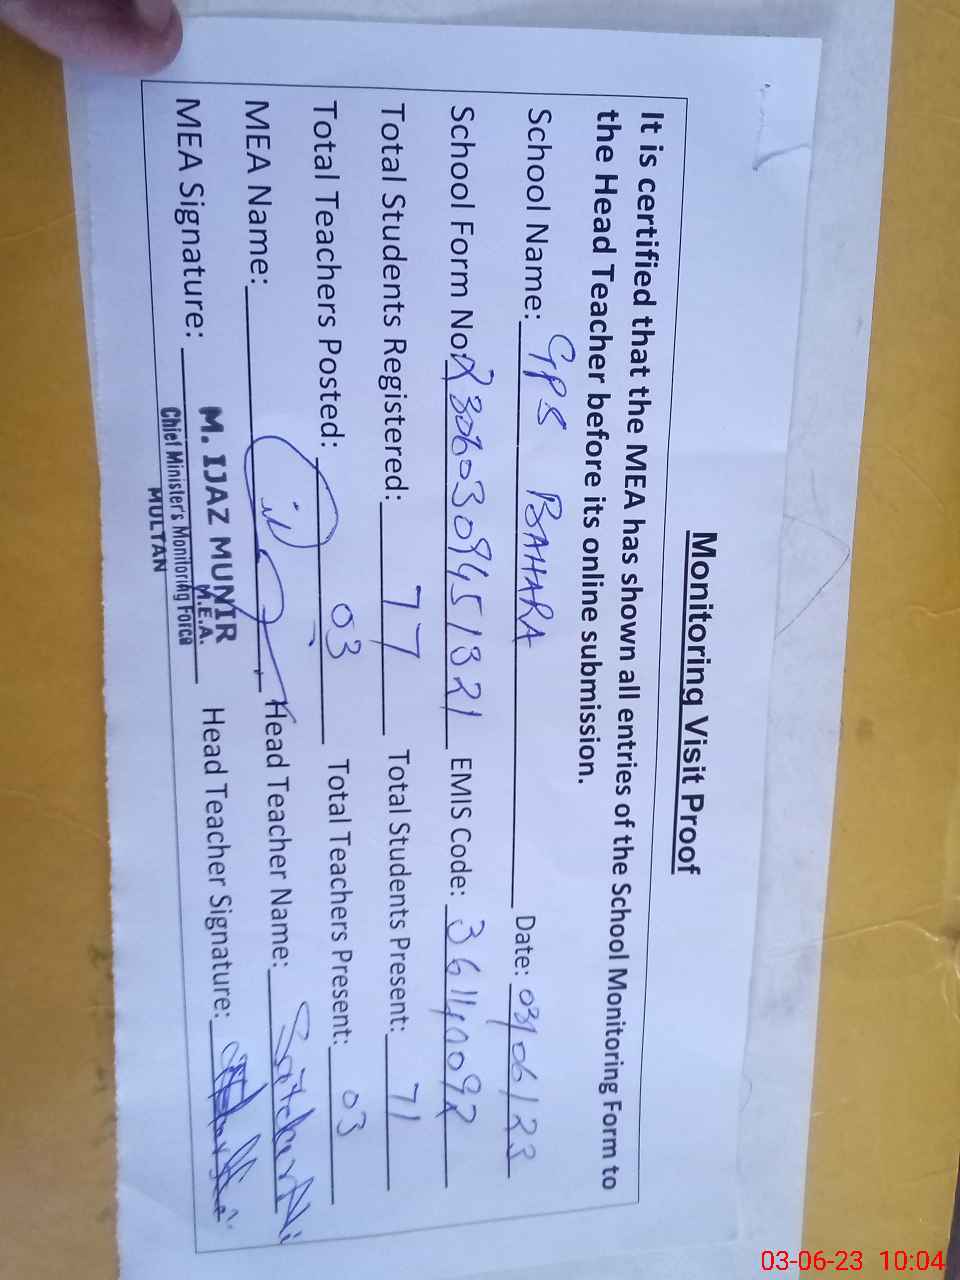 Monitoring Visit Proof
It is certified that the MEA has shown all entries of the School Monitoring Form to
the Head Teacher before its online submission.
School Name: GPS BAHARA Date: 03/06/23
School Form No: 2306030945/321 EMIS Code:
Total Students Registered: 77 Total Students Present: 71
Total Teachers Posted: 03 Total Teachers Present: 03
MEA Name: Head Teacher Name:
MEA Signature: Head Teacher Signature:
M. IJAZ MUNIR
M.E.A.
Chief Minister's Monitoring Force
MULTAN
03-06-23 10:04